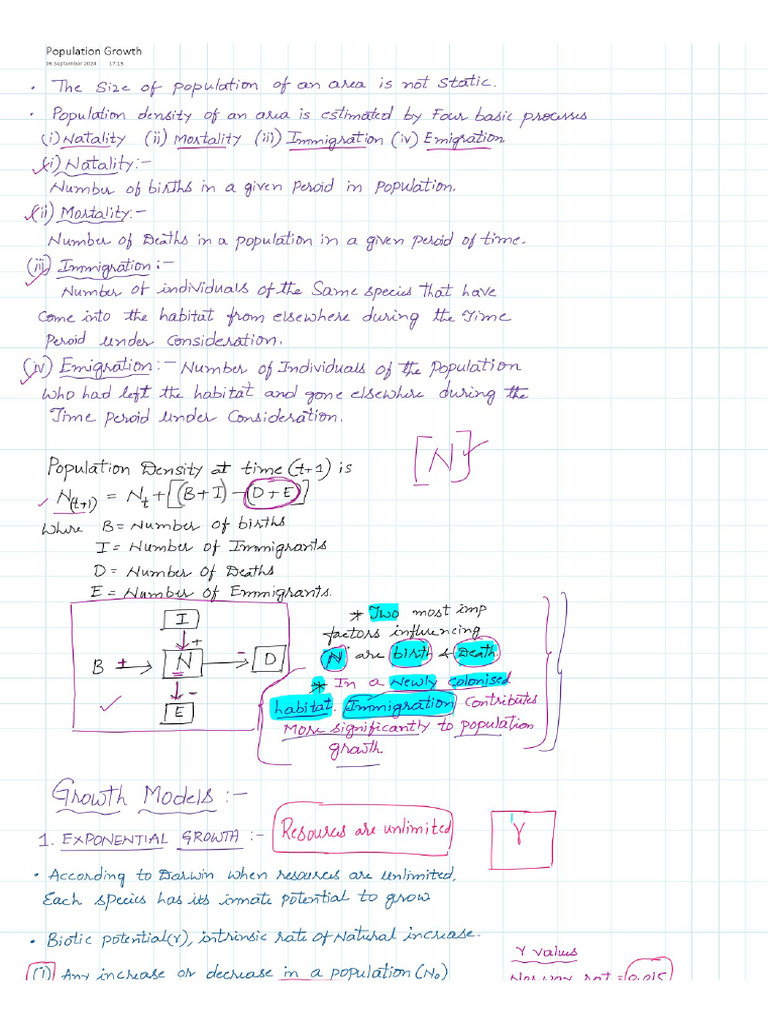 Population Growth
06 September 2024 17:15
• The size of population of an area is not static.
• Population density of an area is estimated by Four basic processes
(i) Natality (ii) Mortality (iii) Immigration (iv) Emigration
(i) Natality:-
Number of births in a given peroid in population.
(ii) Mortality:-
Number of Deaths in a population in a given peroid of time.
(iii) Immigration:-
Number of individuals of the same species that have
come into the habitat from elsewhere during the Time
peroid under consideration.
(iv) Emigration:- Number of Individuals of the population
who had left the habitat and gone elsewhere during the
Time peroid under consideration.
[N]
Population Density at time (t+1) is
N(t+1) = Nt + [(B+I) - (D+E)]
where B = Number of births
I = Number of Immigrants
D = Number of Deaths
E = Number of Emmigrants.
I
+
B + N - D
-
E
* Two most imp
factors influencing
"N" are birth & Death
* In a Newly colonised
habitat. Immigration contributes
More significantly to population
growth.
Growth Models:-
1. EXPONENTIAL GROWTH:-
Resources are unlimited
r
• According to Darwin when resources are unlimited,
Each species has its innate potential to grow
• Biotic potential(r), intrinsic rate of Natural increase.
r values
(1) Any increase or decrease in a population (No)
Norway rat = 0.015